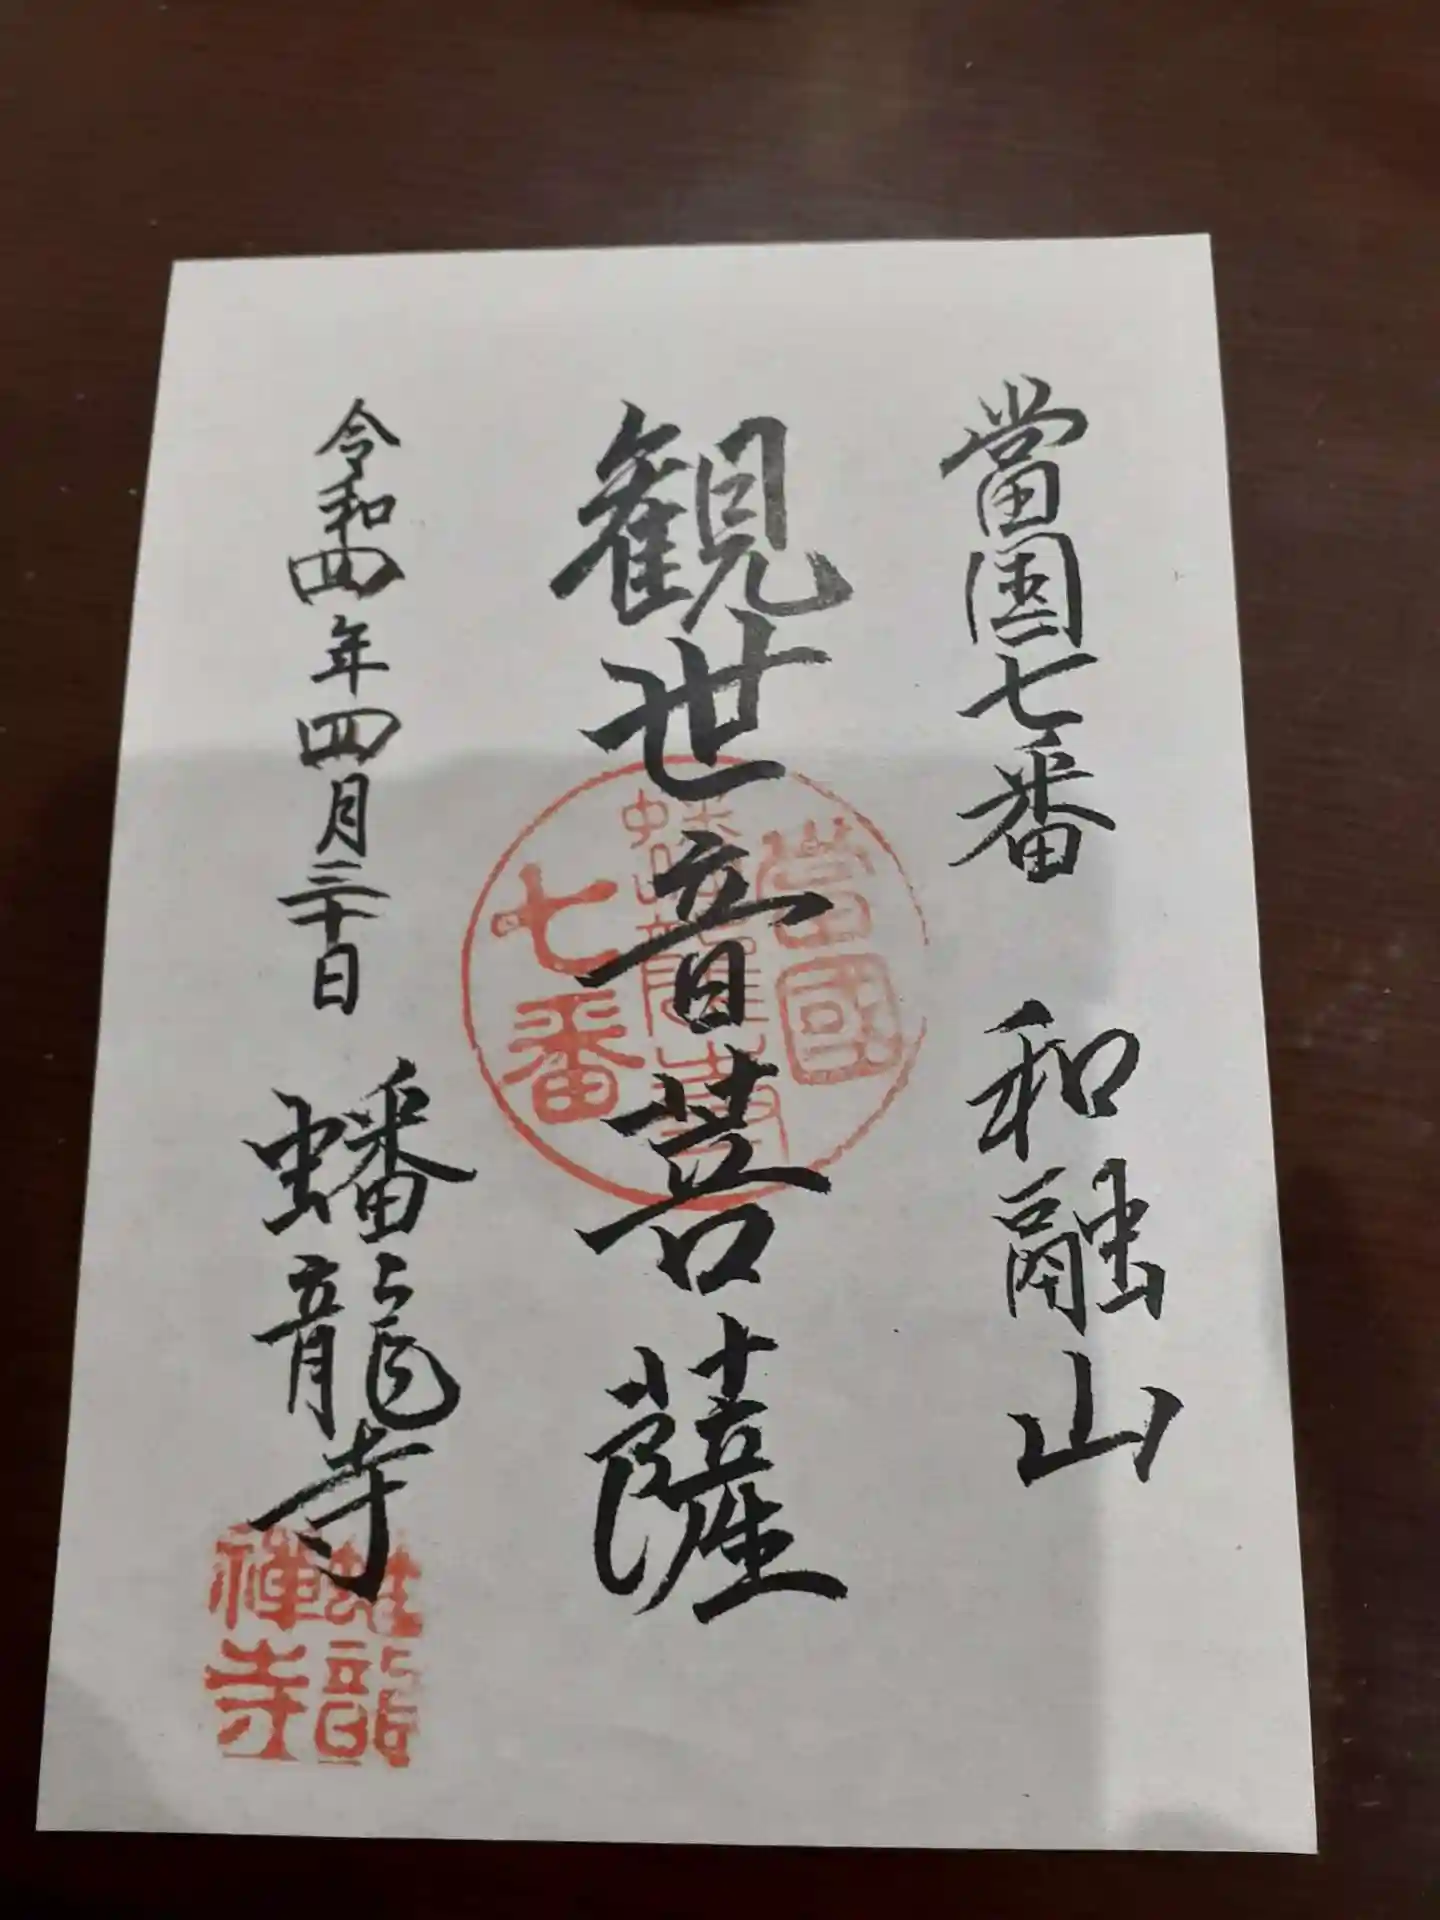 當國七番 和融山
観世音菩薩
令和四年四月三十日 蟠龍寺
當國
蟠龍寺
七番
蟠龍
禅寺